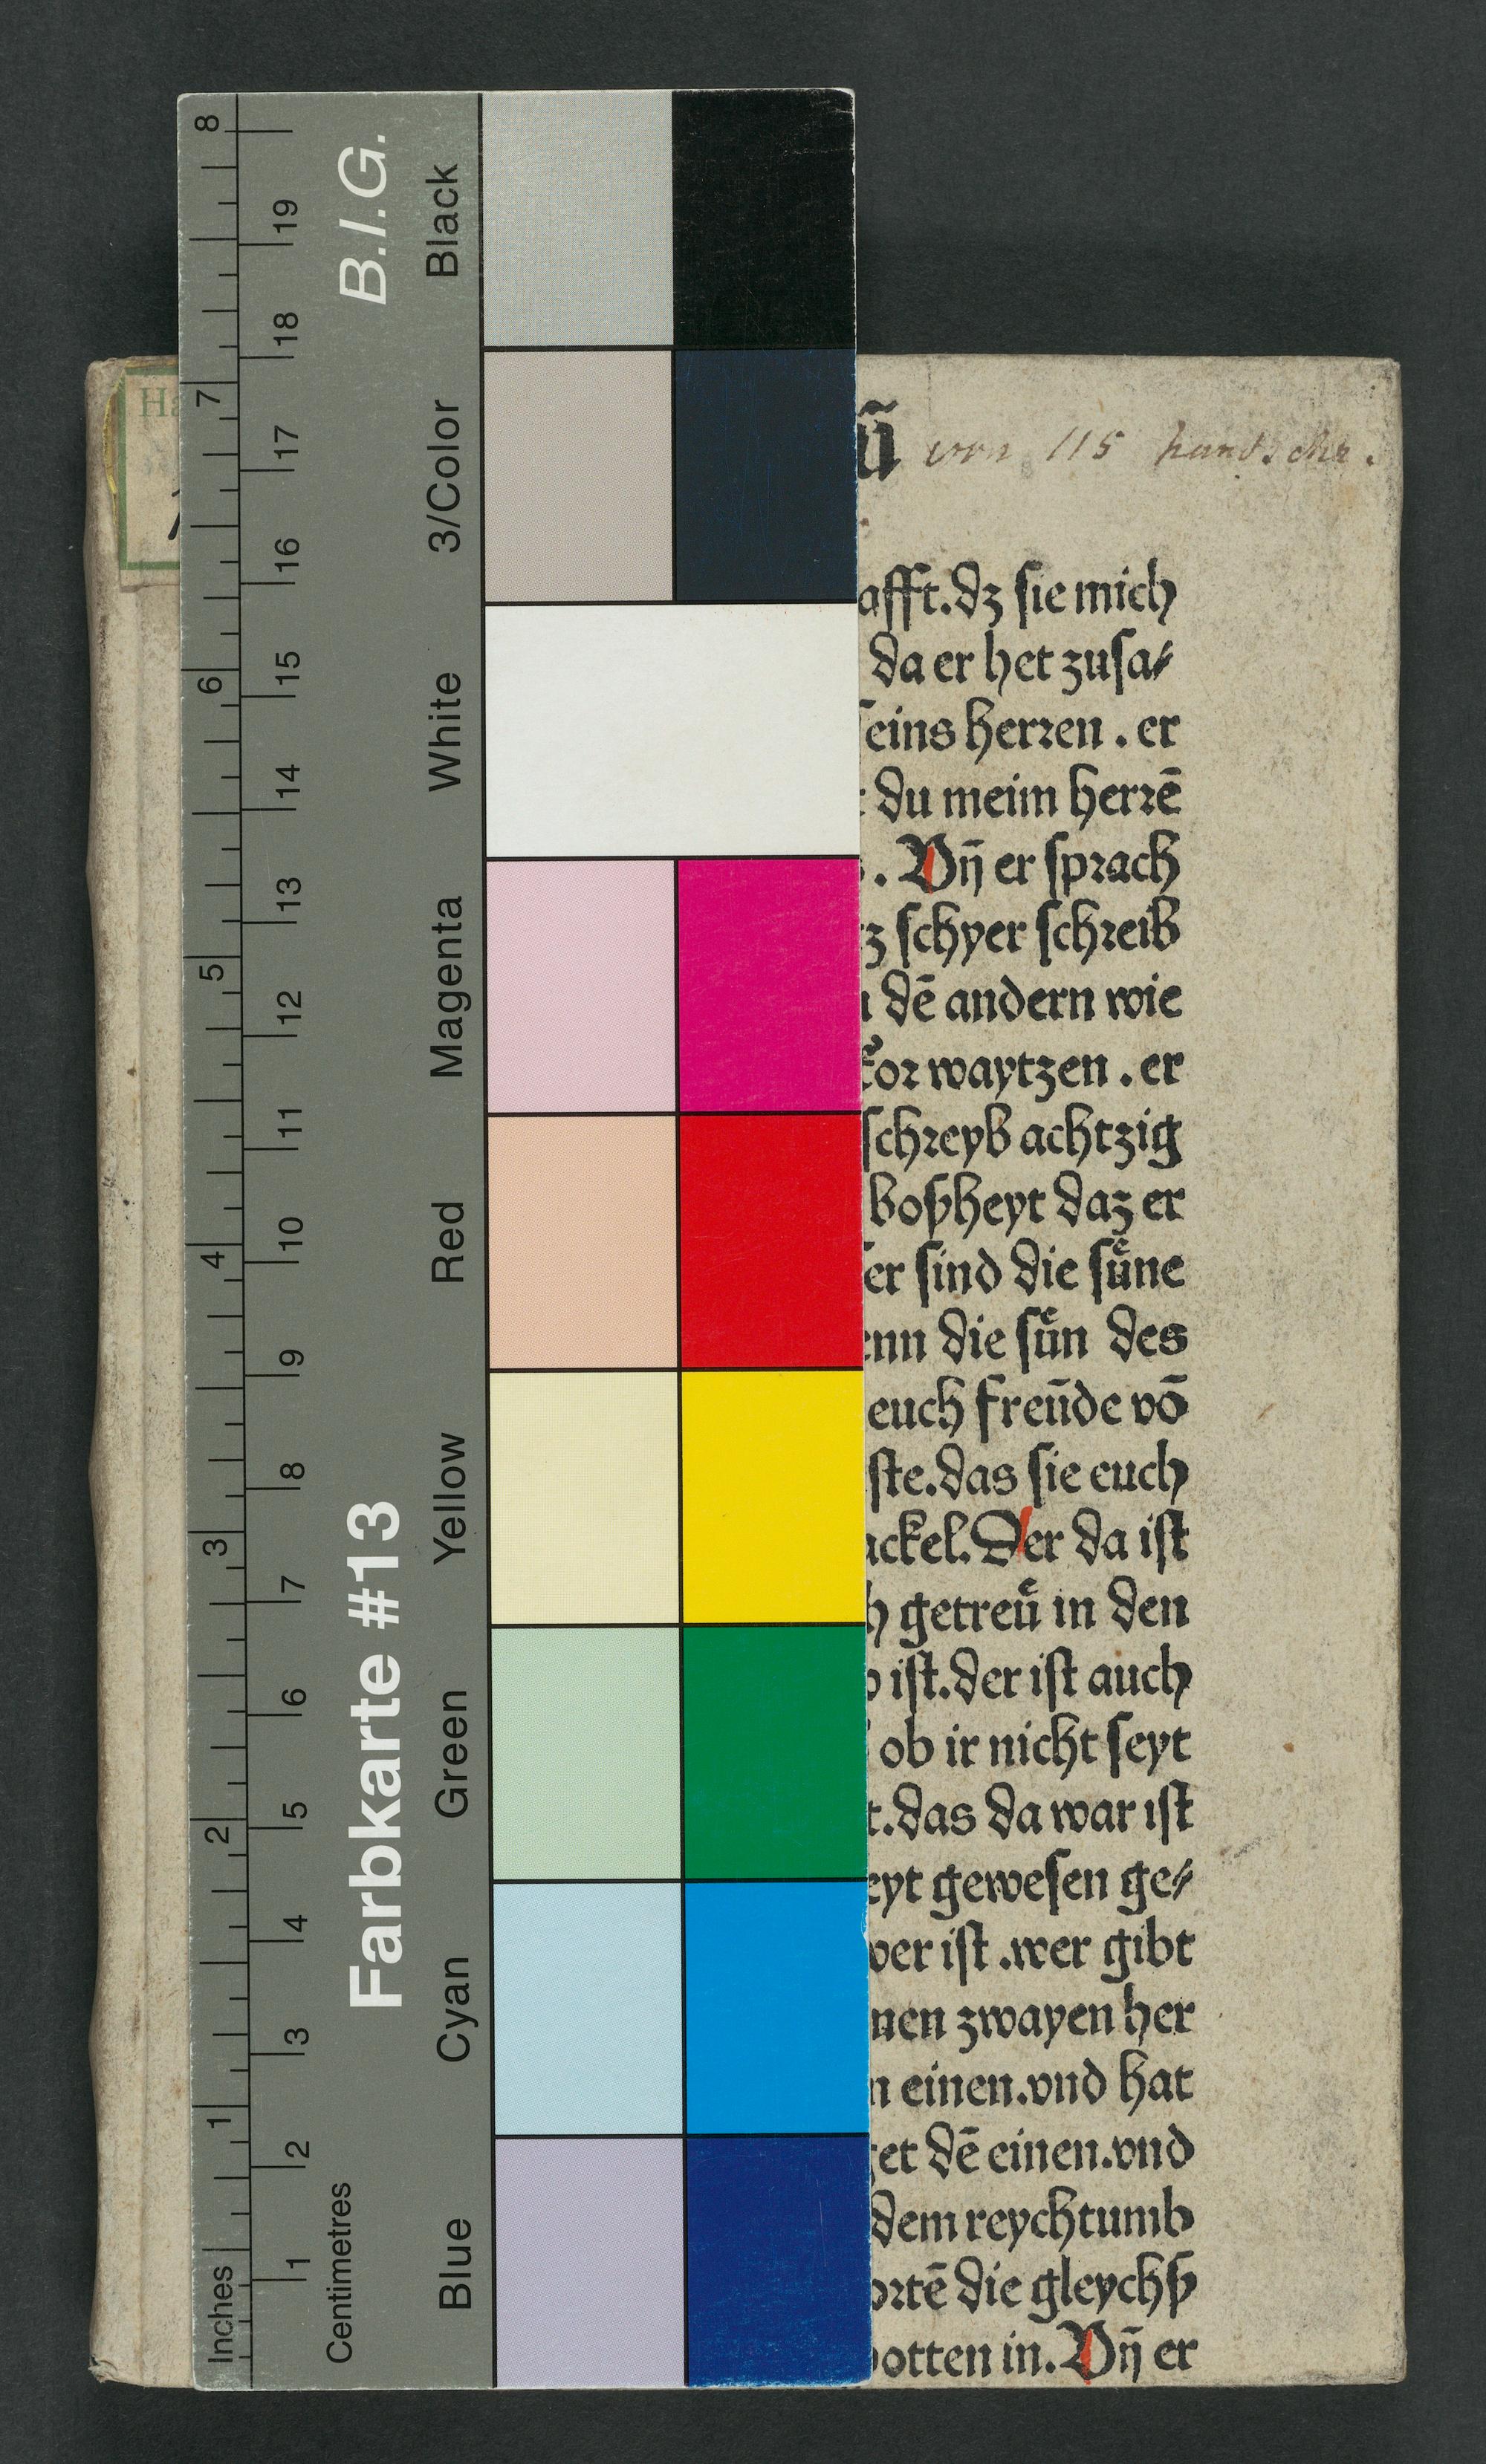 B.I.G.
Farbkarte #13
Black
3/Color
White
Magenta
Red
Yellow
Green
Cyan
Blue
Inches
1
2
3
4
5
6
7
8
Centimetres
1
2
3
4
5
6
7
8
9
10
11
12
13
14
15
16
17
18
19
Ha
ũ von 115 handschr.
afft.dz ſie mich
da er het zuſa⸗
ſeins herꝛen . er
du meim herꝛē
. Vn̄ er ſpꝛach
z ſchyer ſchꝛeib
dē andern wie
koꝛ waytzen . er
ſchꝛeyb achtzig
boßheyt daz er
er ſind die ſuͤne
enn die ſuͤn des
euch freūde vō
ſte.das ſie euch
ackel.Der da iſt
h getreuͤ in den
iſt.der iſt auch
ob ir nicht ſeyt
t.das da war iſt
eyt geweſen ge⸗
wer iſt .wer gibt
nen zwayen her
n einen.vnd hat
et dē einen.vnd
dem reychtumb
oꝛtē die gleychß
potten in.Vn̄ er